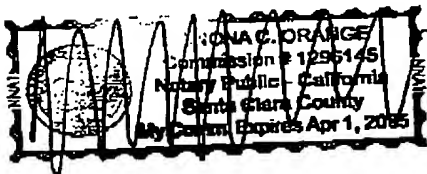 NNA
IONA C. ORANGE
Commission # 1296145
Notary Public - California
Santa Clara County
My Comm. Expires Apr 1, 2005
NNA